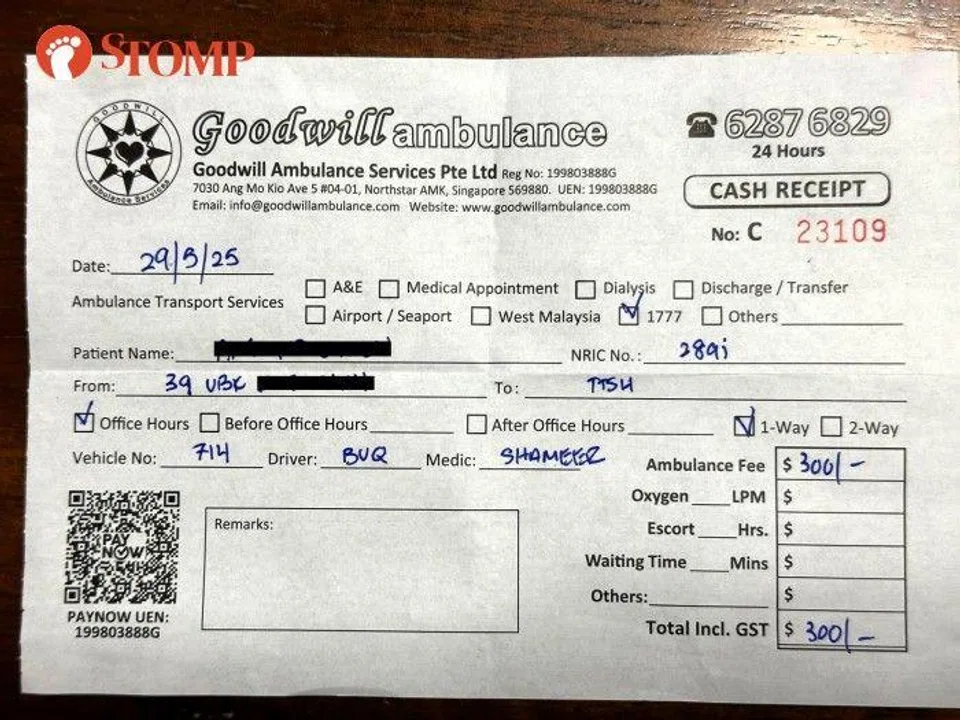 STOMP
GOODWILL
Ambulance Services
Goodwill ambulance
6287 6829
24 Hours
Goodwill Ambulance Services Pte Ltd Reg No: 199803888G
7030 Ang Mo Kio Ave 5 #04-01, Northstar AMK, Singapore 569880. UEN: 199803888G
Email: info@goodwillambulance.com Website: www.goodwillambulance.com
CASH RECEIPT
No: C 23109
Date: 29/5/25
Ambulance Transport Services
A&E Medical Appointment Dialysis Discharge / Transfer
Airport / Seaport West Malaysia 1777 Others
Patient Name: NRIC No.: 289i
From: 39 UBK To: TTSH
Office Hours Before Office Hours After Office Hours 1-Way 2-Way
Vehicle No: 714 Driver: Medic: SHAMEER
Ambulance Fee $ 300/-
Oxygen LPM $
Escort Hrs. $
Waiting Time Mins $
Others: $
Total Incl. GST $ 300/-
Remarks:
PAY NOW
PAYNOW UEN:
199803888G